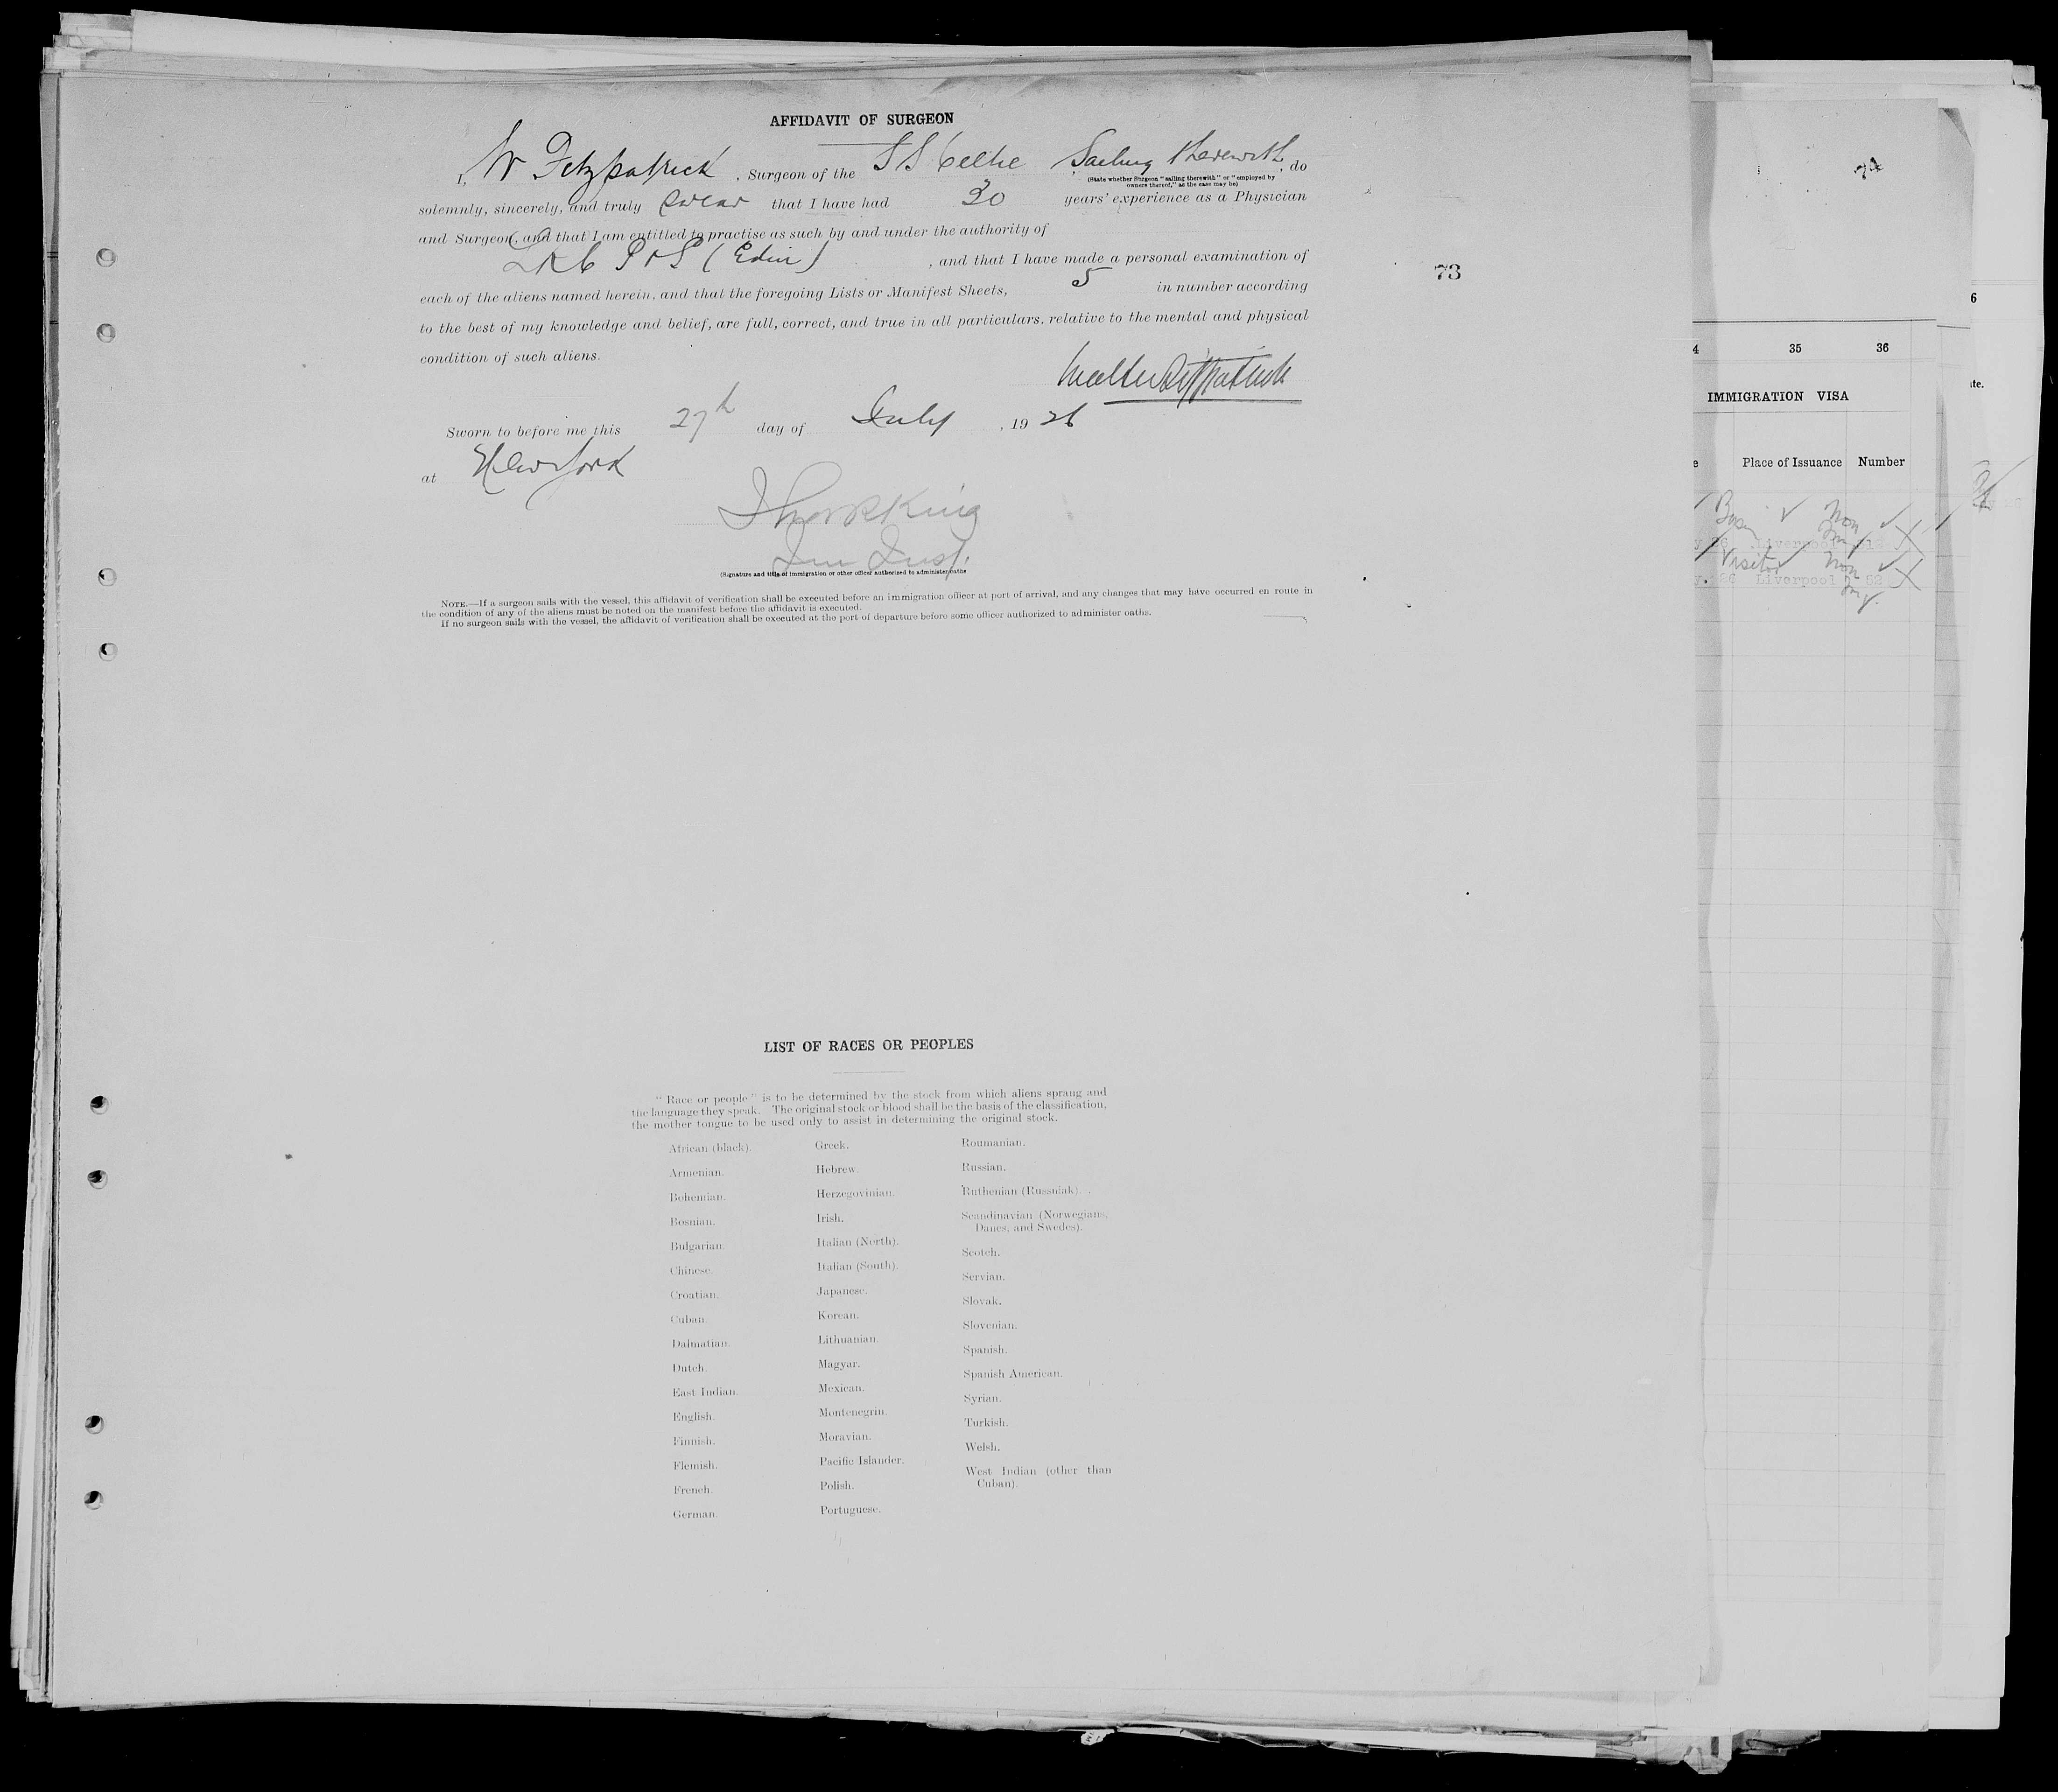 AFFIDAVIT OF SURGEON
I, W Fitzpatrick, Surgeon of the SS Celtic Sailing therewith, do
(State whether Surgeon "sailing therewith" or "employed by
owners thereof," as the case may be)
solemnly, sincerely, and truly swear that I have had 30 years' experience as a Physician
and Surgeon, and that I am entitled to practise as such by and under the authority of
LRC P & S (Edin), and that I have made a personal examination of
each of the aliens named herein, and that the foregoing Lists or Manifest Sheets, 5 in number according
to the best of my knowledge and belief, are full, correct, and true in all particulars, relative to the mental and physical
condition of such aliens.
Walter Fitzpatrick
Sworn to before me this 27th day of July, 1926
at New York
Imm Insp.
(Signature and title of immigration or other officer authorized to administer oaths
NOTE.—If a surgeon sails with the vessel, this affidavit of verification shall be executed before an immigration officer at port of arrival, and any changes that may have occurred en route in
the condition of any of the aliens must be noted on the manifest before the affidavit is executed.
If no surgeon sails with the vessel, the affidavit of verification shall be executed at the port of departure before some officer authorized to administer oaths.
73
LIST OF RACES OR PEOPLES
"Race or people" is to be determined by the stock from which aliens sprang and
the language they speak. The original stock or blood shall be the basis of the classification,
the mother tongue to be used only to assist in determining the original stock.
African (black).
Armenian.
Bohemian.
Bosnian.
Bulgarian.
Chinese.
Croatian.
Cuban.
Dalmatian.
Dutch.
East Indian.
English.
Finnish.
Flemish.
French.
German.
Greek.
Hebrew.
Herzegovinian.
Irish.
Italian (North).
Italian (South).
Japanese.
Korean.
Lithuanian.
Magyar.
Mexican.
Montenegrin.
Moravian.
Pacific Islander.
Polish.
Portuguese.
Roumanian.
Russian.
Ruthenian (Russniak).
Scandinavian (Norwegians,
Danes, and Swedes).
Scotch.
Servian.
Slovak.
Slovenian.
Spanish.
Spanish American.
Syrian.
Turkish.
Welsh.
West Indian (other than
Cuban).
74
4 35 36
IMMIGRATION VISA
e Place of Issuance Number
Non
26 Liverpool
Visitor Non
26 Liverpool 52
6
te.